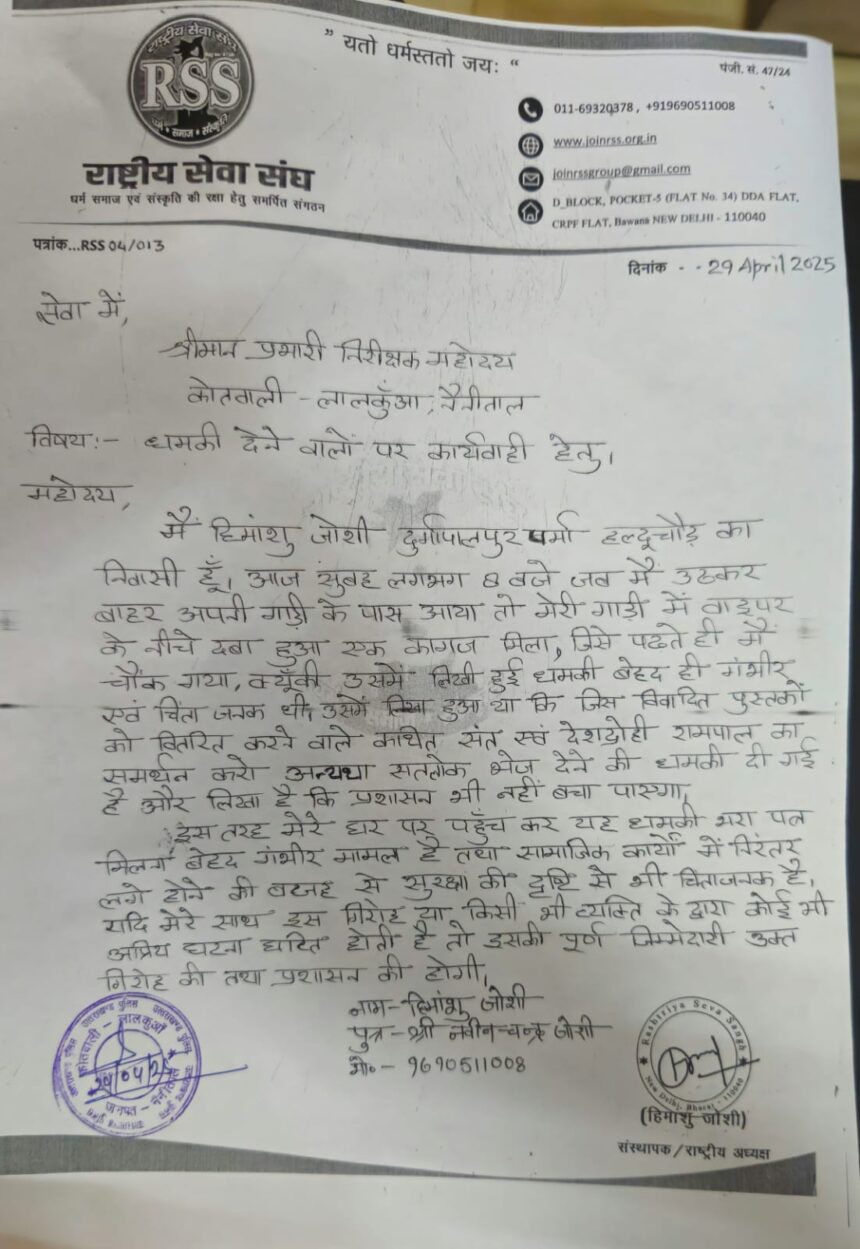 राष्ट्रीय सेवा संघ
RSS
धर्म • समाज • संस्कृति
राष्ट्रीय सेवा संघ
धर्म समाज एवं संस्कृति की रक्षा हेतु समर्पित संगठन
" यतो धर्मस्ततो जयः "
पंजी. सं. 47/24
011-69320378 , +919690511008
www.joinrss.org.in
joinrssgroup@gmail.com
D_BLOCK, POCKET-5 (FLAT No. 34) DDA FLAT,
CRPF FLAT, Bawana NEW DELHI - 110040
पत्रांक...RSS 04/013
दिनांक - - 29 April 2025
सेवा में,
श्रीमान प्रभारी निरीक्षक महोदय
कोतवाली - लालकुँआ, नैनीताल
विषय:- धमकी देने वालों पर कार्यवाही हेतु।
महोदय,
मैं हिमांशु जोशी दुर्गापालपुर पर्मा हल्दूचौड़ का
निवासी हूँ। आज सुबह लगभग 8 बजे जब मैं उठकर
बाहर अपनी गाड़ी के पास आया तो मेरी गाड़ी में वाइपर
के नीचे दबा हुआ एक कागज मिला, जिसे पढते ही मैं
चौंक गया, क्यूँकी उसमें लिखी हुई धमकी बेहद ही गंभीर
एवं चिंता जनक थी, उसमें लिखा हुआ था कि जिस विवादित पुस्तकों
को वितरित करने वाले कथित संत एवं देशद्रोही रामपाल का
समर्थन करो अन्यथा सतलोक भेज देने की धमकी दी गई
है और लिखा है कि प्रशासन भी नहीं बचा पाएगा,
इस तरह मेरे घर पर पहुँच कर यह धमकी भरा पत्र
मिलना बेहद गंभीर मामल है तथा सामाजिक कार्यों में निरंतर
लगे होने की वजह से सुरक्षा की दृष्टि से भी चिंताजनक है,
यदि मेरे साथ इस गिरोह या किसी भी व्यक्ति के द्वारा कोई भी
अप्रिय घटना घटित होती है तो इसकी पूर्ण जिम्मेदारी उक्त
गिरोह की तथा प्रशासन की होगी,
नाम - हिमांशु जोशी
पुत्र - श्री नवीन चन्द्र जोशी
मो० - 9690511008
उत्तराखण्ड पुलिस
कोतवाली - लालकुआँ
29/04/25
जनपद - नैनीताल
Rashtriya Seva Sangh
New Delhi, Bharat - 110040
(हिमांशु जोशी)
संस्थापक/राष्ट्रीय अध्यक्ष